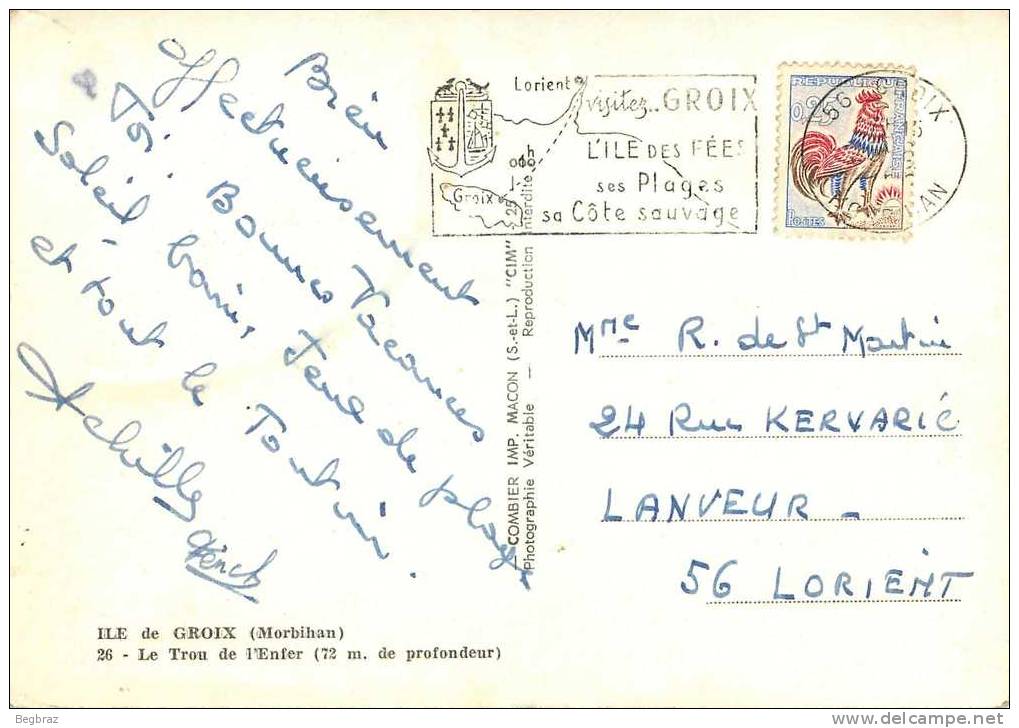 Bien
Affectueusement
Toi. Bonnes Vacances
Soleil, bains, Jeux de plage
et tout le Tontouin.
Achille
Lorient
Groix
visitez.. GROIX
L'ILE DES FÉES
ses Plages
sa Côte sauvage
REPUBLIQUE FRANÇAISE
POSTES
56 GROIX
MORBIHAN
COMBIER IMP. MACON (S.-et-L.) "CIM"
Photographie Véritable — Reproduction interdite
Mme R. de St Martin
24 Rue KERVARIC
LANVEUR -
56 LORIENT
ILE de GROIX (Morbihan)
26 - Le Trou de l'Enfer (72 m. de profondeur)
Begbraz
www.delcampe.net